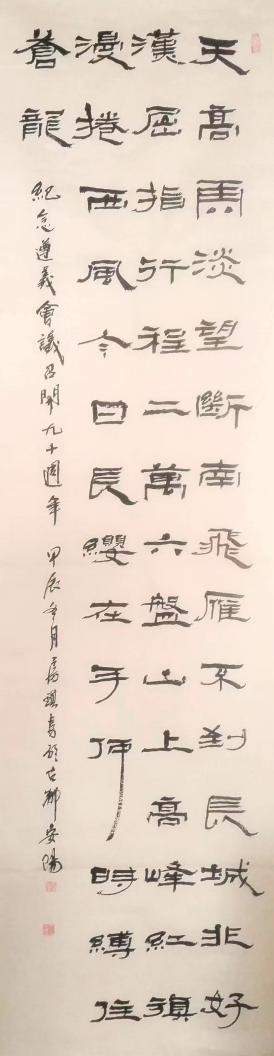 天高馬淡望斷南飛雁不到長城非好
漢屈指行程二萬六盤山上高峰紅旗
漫捲西風今日長纓在手何時縛住
蒼龍
紀念遵義會議召開九十週年 甲辰冬月書於古都安陽